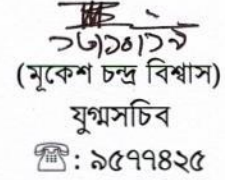 ১৬/১০/১৯
(মূকেশ চন্দ্র বিশ্বাস)
যুগ্মসচিব
☎: ৯৫৭৭৪২৫